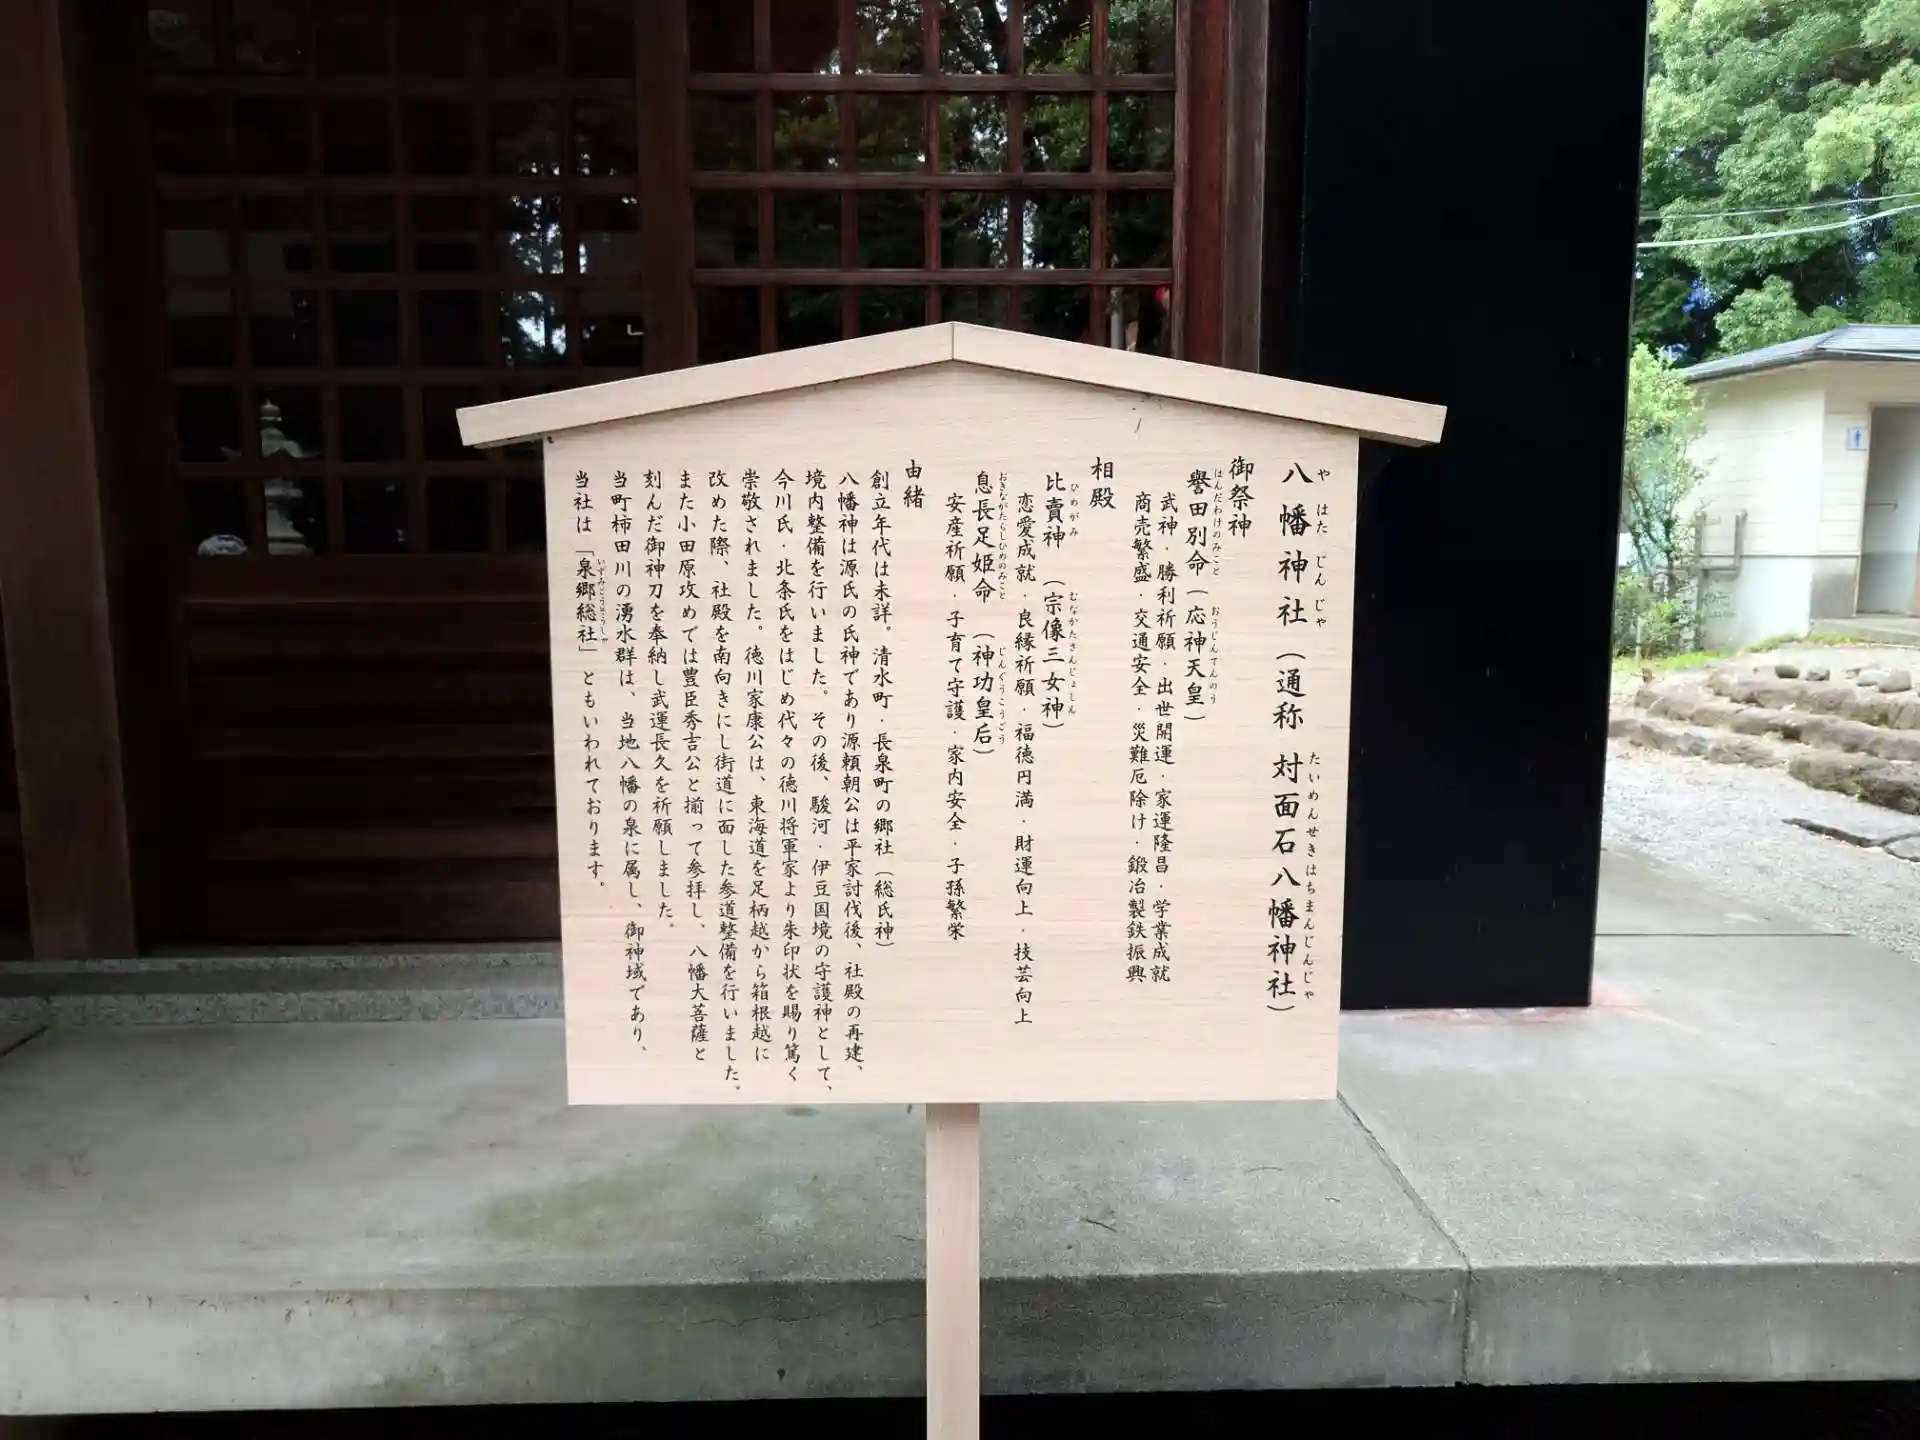 八幡神社（通称 対面石八幡神社）
やはたじんじゃ たいめんせきはちまんじんじゃ
御祭神
誉田別命（応神天皇）
ほんだわけのみこと おうじんてんのう
武神・勝利祈願・出世開運・家運隆昌・学業成就
商売繁盛・交通安全・災難厄除け・鍛冶製鉄振興
相殿
比賣神（宗像三女神）
ひめがみ むなかたさんじょしん
恋愛成就・良縁祈願・福徳円満・財運向上・技芸向上
息長足姫命（神功皇后）
おきながたらしひめのみこと じんぐうこうごう
安産祈願・子育て守護・家内安全・子孫繁栄
由緒
創立年代は未詳。清水町・長泉町の郷社（総氏神）
八幡神は源氏の氏神であり源頼朝公は平家討伐後、社殿の再建、
境内整備を行いました。その後、駿河・伊豆国境の守護神として、
今川氏・北条氏をはじめ代々の徳川将軍家より朱印状を賜り篤く
崇敬されました。徳川家康公は、東海道を足柄越から箱根越に
改めた際、社殿を南向きにし街道に面した参道整備を行いました。
また小田原攻めでは豊臣秀吉公と揃って参拝し、八幡大菩薩と
刻んだ御神刀を奉納し武運長久を祈願しました。
当町柿田川の湧水群は、当地八幡の泉に属し、御神域であり、
当社は「泉郷総社」ともいわれております。